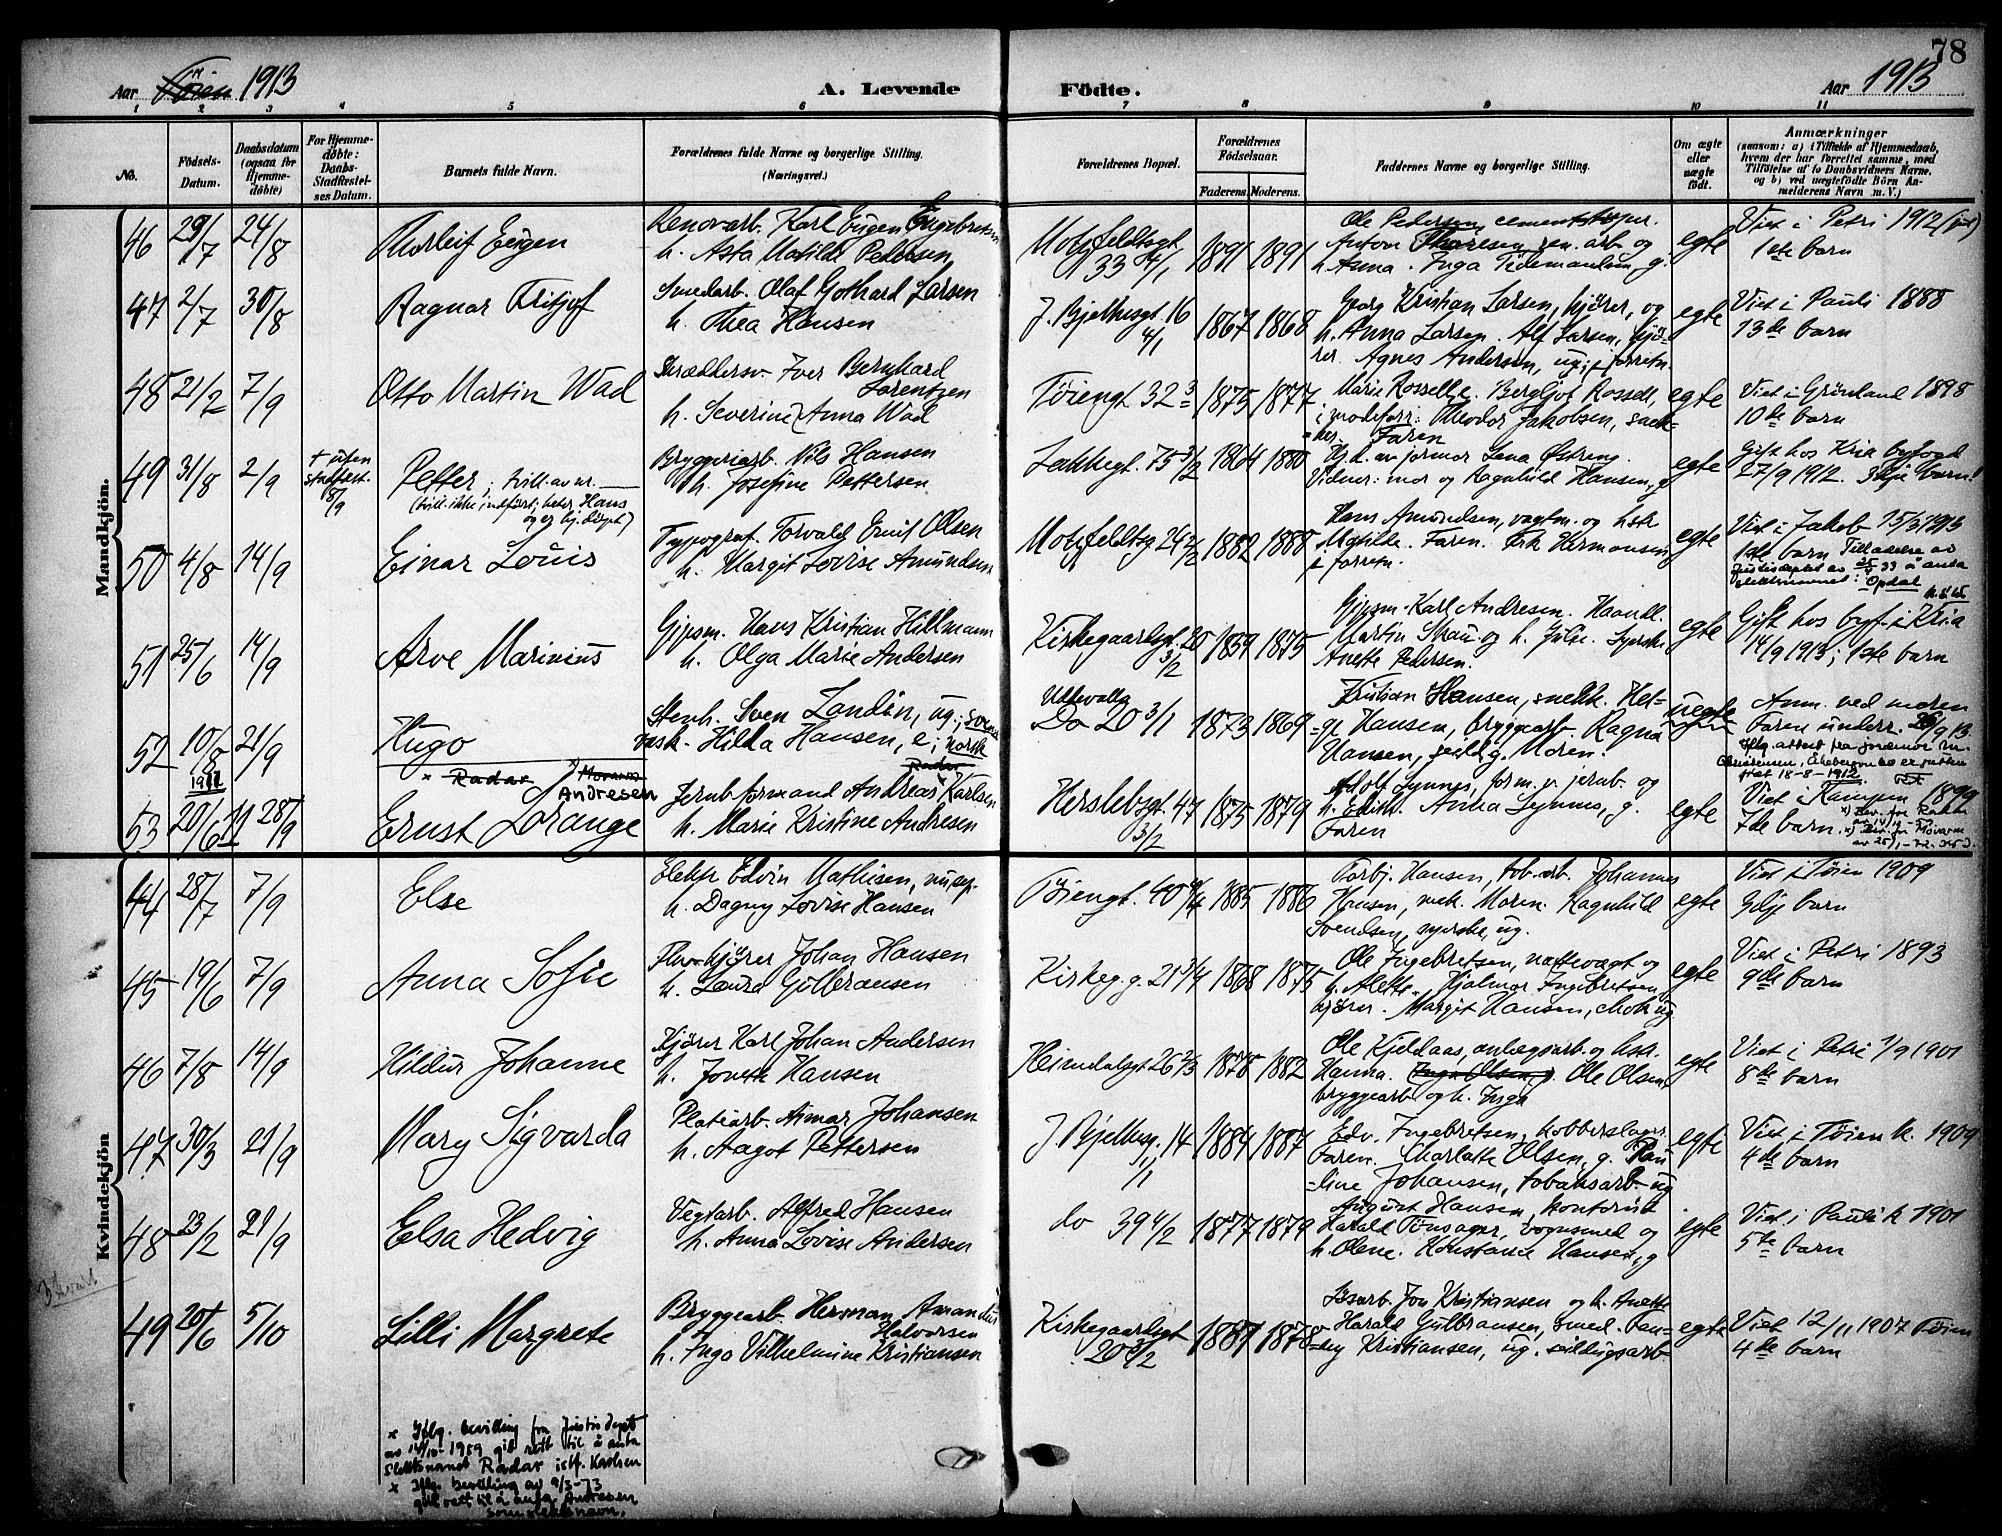 78
Aar 1913
A. Levende Födte.
Aar 1913
1 2 3 4 5 6 7 8 9 10 11
No.
Födsels-Datum.
Daabsdatum (ogsaa for Hjemmedøbte)
For Hjemmedøbte: Daabs-Stadfæstelses Datum.
Barnets fulde Navn.
Forældrenes fulde Navne og borgerlige Stilling. (Næringsvei.)
Forældrenes Bopæl.
Forældrenes Födselsaar.
Faderens. Moderens.
Faddernes Navne og borgerlige Stilling.
Om ægte eller uægte födt.
Anmærkninger (saasom: a) i Tilfælde af Hjemmedaab, hvem der har forrettet samme, med Tilföielse af to Daabsvidners Navne, og b) ved uægtefödte Börn Anmelderens Navn m. V.)
Mandkjön.
46 29/7 24/8 Thorleif Eugen
Renovarb. Karl Eugen Engebretsen
h. Asta Matilde Pedersen
Motzfeldtsgt 33 4/1 1891 1891
Ole Pedersen, cementstøper.
Anton Thoresen, ren. arb og
h. Anna. Inga Tidemandsen, g.
egte
Viet i Petri 1912
1ste barn
47 2/7 30/8 Ragnar Fritjof
Smedarb. Olaf Gothard Larsen
h. Thea Hansen
J. Bjelkesgt 16 4/1 1867 1868
Georg Kristian Larsen, kjører, og
h. Anna Larsen. Alf Larsen, kjører. Agnes Andersen, ug. i forretn.
egte
Viet i Pauli 1888
13de barn
48 21/2 7/9 Otto Martin Wad
Skræddersv. Iver Bernhard
Lorentzen
h. Severine Anna Wad
Tøiengt 32 3 1875 1877
Marie Rosselle. Bergljot Rossell,
i modeforr. Theodor Jakobsen, snekker. Faren
egte
Viet i Grønland 1898
10de barn
49 31/8 2/9 + uten stadfæst. 8/9
Petter; tvill. av nr. —
(tvill. ikke indført; heter Hans
og er hj. døpt)
Bryggeriarb. Nils Hansen
h. Josefine Pettersen
Lakkegt. 75 3/2 1864 1880
Hj.d. av jormor Lena Østreng.
Vidner: mor og Ragnhild Hansen, g
egte
Gift hos Kria byfogd
27/9 1912. 3dje barn!
50 4/8 14/9 Einar Louis
Typograf. Torvald Emil Olsen
h. Margit Lovise Amundsen
Motzfeldtsg 24 2/2 1882 1888
Hans Amundsen, vagtm. og hsk
Matilde. Faren. Erk Hermansen,
i forretn.
egte
Viet i Jakob 15/3 1913
1ste barn Tilladelse av
Justisdeptet av 33 å anta
slektsnavnet: Opdal
51 25/6 14/9 Arve Marinius
Gipsm. Hans Kristian Hillmann
h. Olga Marie Andersen
Kirkegaardsgt. 20 3/2 1889 1875
Gipsm. Karl Andresen. Haandl.
Martin Skau og h. Julie. Syerske
Anette Pedersen.
egte
Gift hos byf. i Kria
14/9 1913; 1ste barn
52 10/8 1912 21/9 Hugo
Stenh. Sven Landin, ug.; svensk
h. Hilda Hansen, e; norsk
Uddevalla
Do 20 3/1 1873 1869
Kristian Hansen, snekk. Helge Hansen, bryggearb. Ragna
Hansen. Moren.
uegte
Anm. ved moren
Faren underr. 26/9 13.
Iflg. attest fra jordmor
Christensen, er gutten
født 18-8-1912
53 20/6 11 28/9 Ernst Lorange
x Radar Andresen
Jernb.formand Andreas Karlsen
h. Marie Kristine Andresen
Herslebsgt 47 3/2 1875 1879
Adolf Lynnes, form. v. jernb. og
h. Edith. Anna Lynnes, g.
Faren
egte
Viet i Kampen 1899
7de barn. x) Bev. for Radar
Kvindekjön
44 28/7 7/9 Else
Elektr Edvin Mathisen,
h. Dagny Lovise Hansen
Tøiengt. 40 4/4 1885 1886
Torbj. Hansen, tob. arb. Johannes
Hansen, mek. Moren. Ragnhild
Svendsen, syerske, ug.
egte
Viet i Tøien 1909
2dje barn
45 19/6 7/9 Anna Sofie
Johan Hansen
h. Laura Gulbransen
Kirkeg. g. 21 3/4 1868 1875
Ole Ingebretsen, nattevagt og
h. Alette. Hjalmar Ingebretsen,
kjører. Margit Hansen, chok ug
egte
Viet i Petri 1893
9de barn
46 7/8 14/9 Hildur Johanne
Kjører Karl Johan Andersen
h. Hansen
Heimdalsgt 26 2/3 1878 1882
Ole Kjeldaas, anlægsarb og hsk.
Hanna. Inga Olsen, g. Ole Olsen,
bryggearb og h. Inga
egte
Viet i Petri 1/9 1901
8de barn
47 30/3 21/9 Mary Sigvarda
Platearb. Aimar Johansen
h. Aagot Pettersen
J. Bjelkesg. 14 1/1 1884 1887
Edv. Ingebretsen, kobberslager.
Faren. Charlotte Olsen, g. Pauline Johansen, tobaksarb. ug
egte
Viet i Tøien k. 1909
4de barn
48 23/2 21/9 Elsa Hedvig
Vegtarb. Alfred Hansen
h. Anna Lovise Andersen
do 39 4/2 1877 1879
August Hansen, kontorist.
Harald Tønsager, vognsmed og
h. Olene. Konstanse Hansen, g
egte
Viet i Pauli k 1901
5te barn
49 20/6 5/10 Lilli Margrete
Bryggearb. Herman Amandus
Halvorsen
h. Inga Vilhelmine Kristiansen
Kirkegaardsgt 20 3/2 1887 1878
Jon Kristiansen og h. Anette
Harald Gulbransen, smed. Fanny Kristiansen, ug.
egte
Viet 12/11 1907 Tøien
4de barn
x Iflg. bevilling fra Justisdept
av 14/10-1959 gis rett til å anta
slektsnavnet Radar istf. Karlsen
x Iflg. bevilling av 9/3-73
gis rett til å anta Andresen
som slektsnavn.